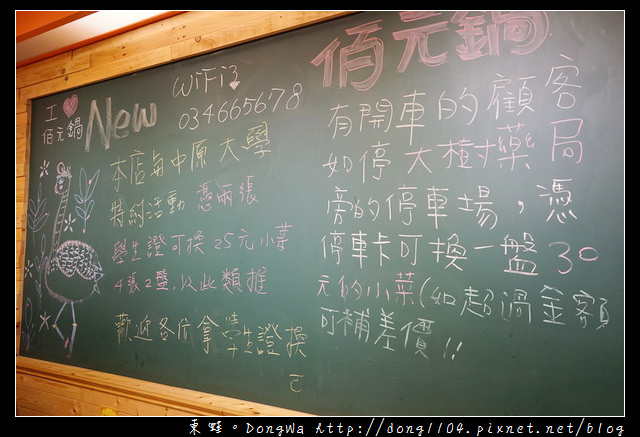 工❤
佰元鍋
New
WiFi3
034665678
本店與中原大學
特約活動 憑兩張
學生證可換25元小菜
4張2盤,以此類推
歡迎各位拿學生證換
佰元鍋
有開車的顧客
如停大樹藥局
旁的停車場，憑
停車卡可換一盤30
元的小菜(如超過金額
可補差價!!
東蛙。DongWa http://dong1104.pixnet.net/blog